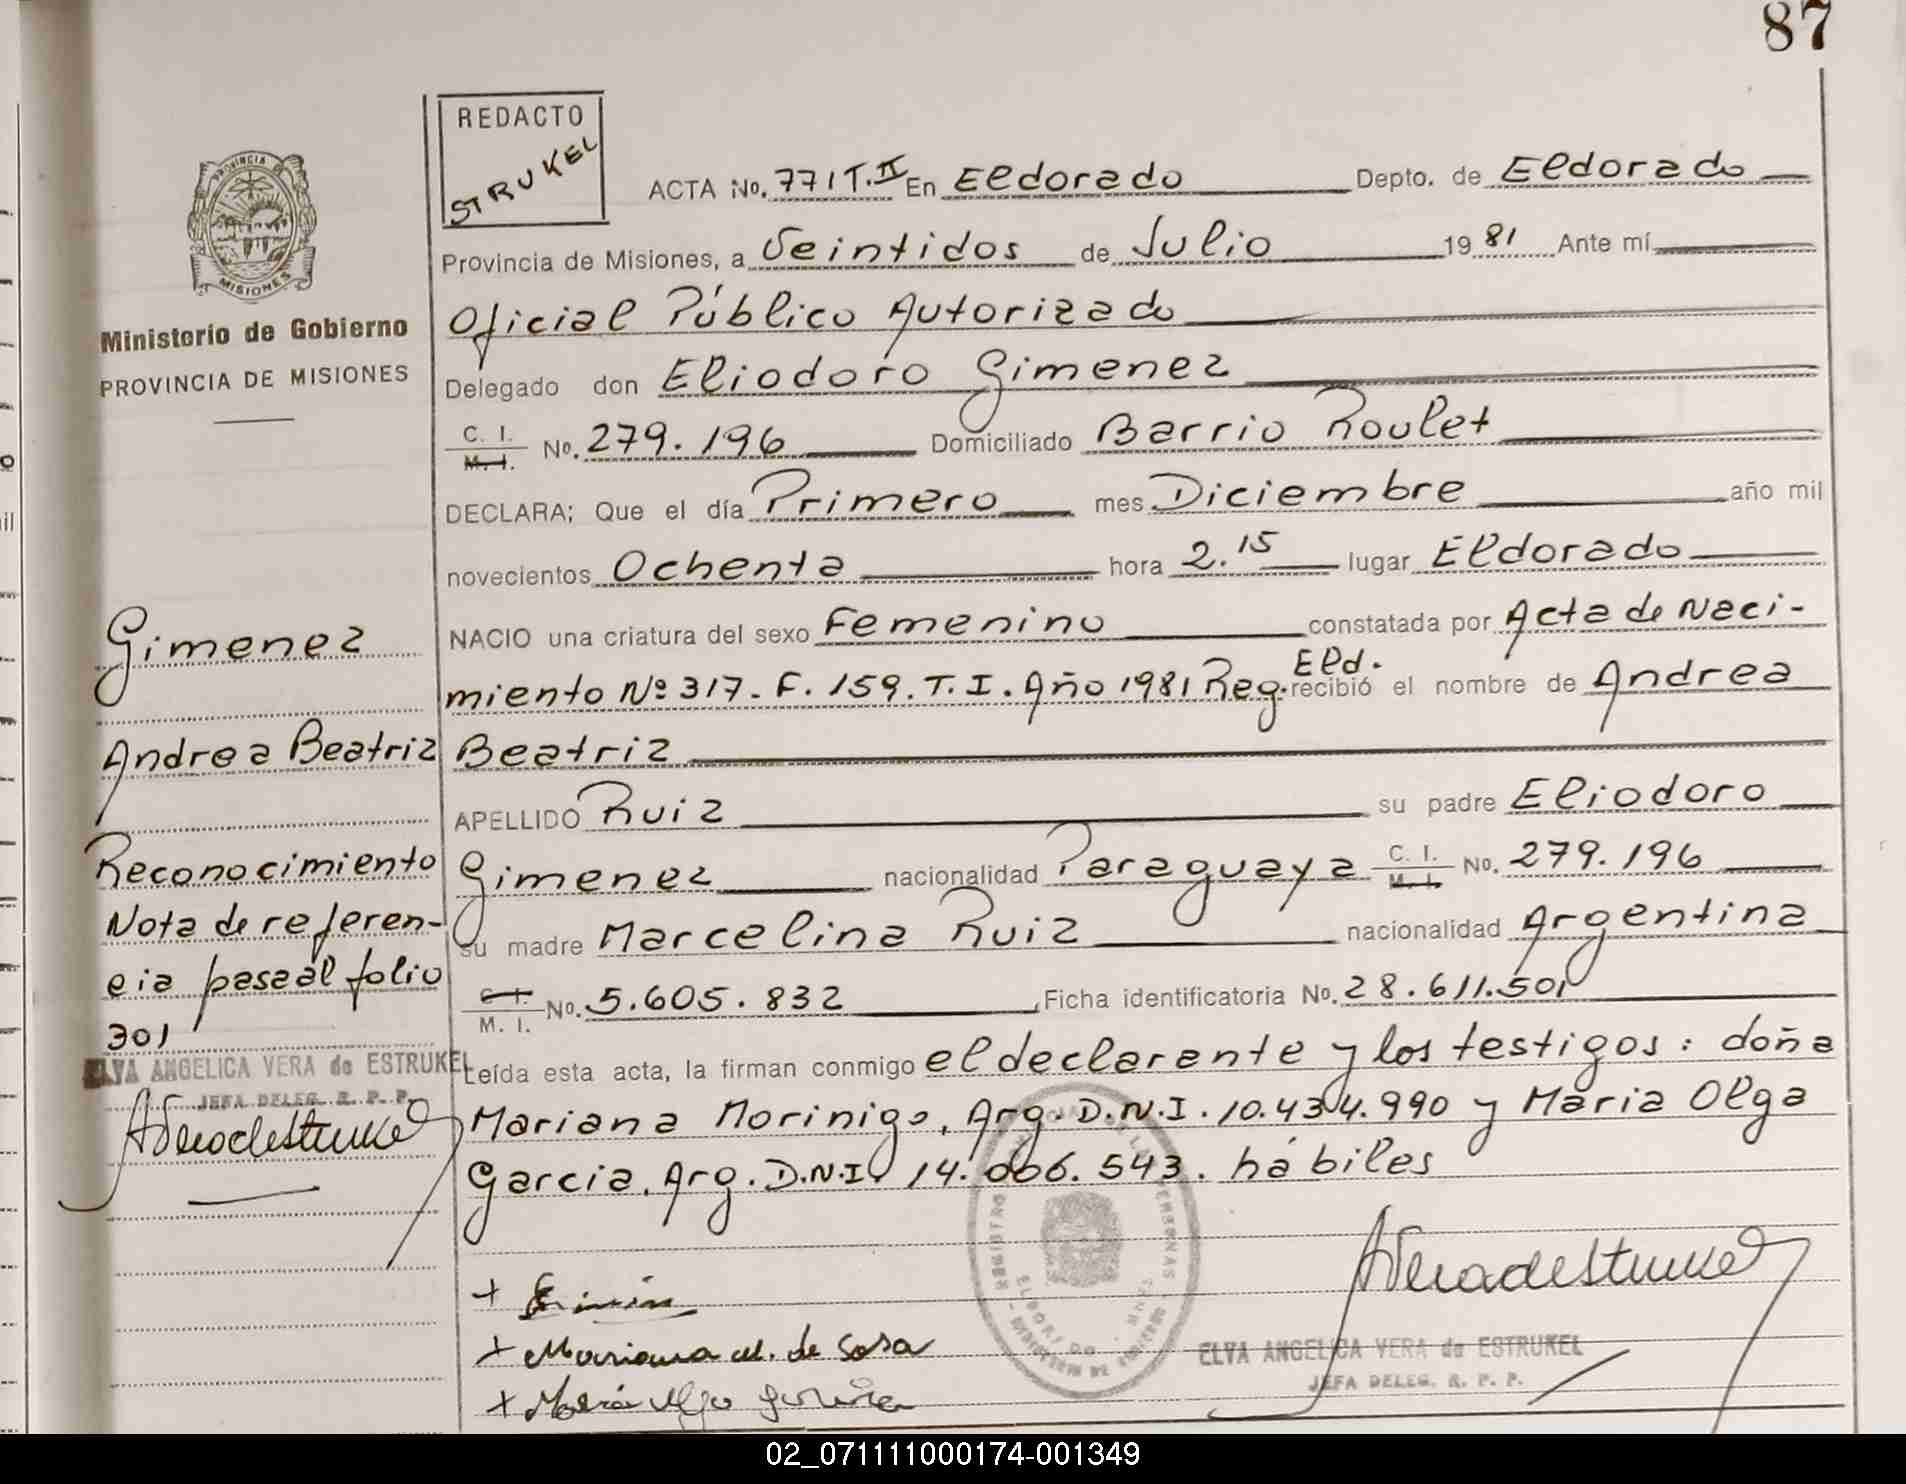 87
REDACTO
STRUKEL
PROVINCIA
MISIONES
Ministerio de Gobierno
PROVINCIA DE MISIONES
ACTA No. 771 T. II En Eldorado Depto. de Eldorado
Provincia de Misiones, a Veintidos de Julio 19 81 Ante mí
Oficial Público Autorizado
Delegado don Eliodoro Gimenez
C. I. M. I. No. 279.196 Domiciliado Barrio Roulet
DECLARA; Que el día Primero mes Diciembre año mil
novecientos Ochenta hora 2.15 lugar Eldorado
NACIO una criatura del sexo Femenino constatada por Acta de Naci-
miento Nº 317. F. 159. T. I. Año 1981 Reg. Eld. recibió el nombre de Andrea
Beatriz
APELLIDO Ruiz su padre Eliodoro
Gimenez nacionalidad Paraguaya C. I. M. I. No. 279.196
su madre Marcelina Ruiz nacionalidad Argentina
C. I. M. I. No. 5.605.832 Ficha identificatoria No. 28.611.501
Leída esta acta, la firman conmigo el declarante y los testigos: doña
Mariana Morinigo, Arg. D.N.I. 10.434.990 y Maria Olga
Garcia, Arg. D.N.I. 14.006.543. hábiles
Gimenez
Andrea Beatriz
Reconocimiento
Nota de referen-
cia pasa al folio
301
ELVA ANGELICA VERA de ESTRUKEL
JEFA DELEG. R. P. P.
AVeradeEstrukel
+
+ Mariana M. de Sosa
+ María Olga
AVeradeEstrukel
ELVA ANGELICA VERA de ESTRUKEL
JEFA DELEG. R. P. P.
02_071111000174-001349